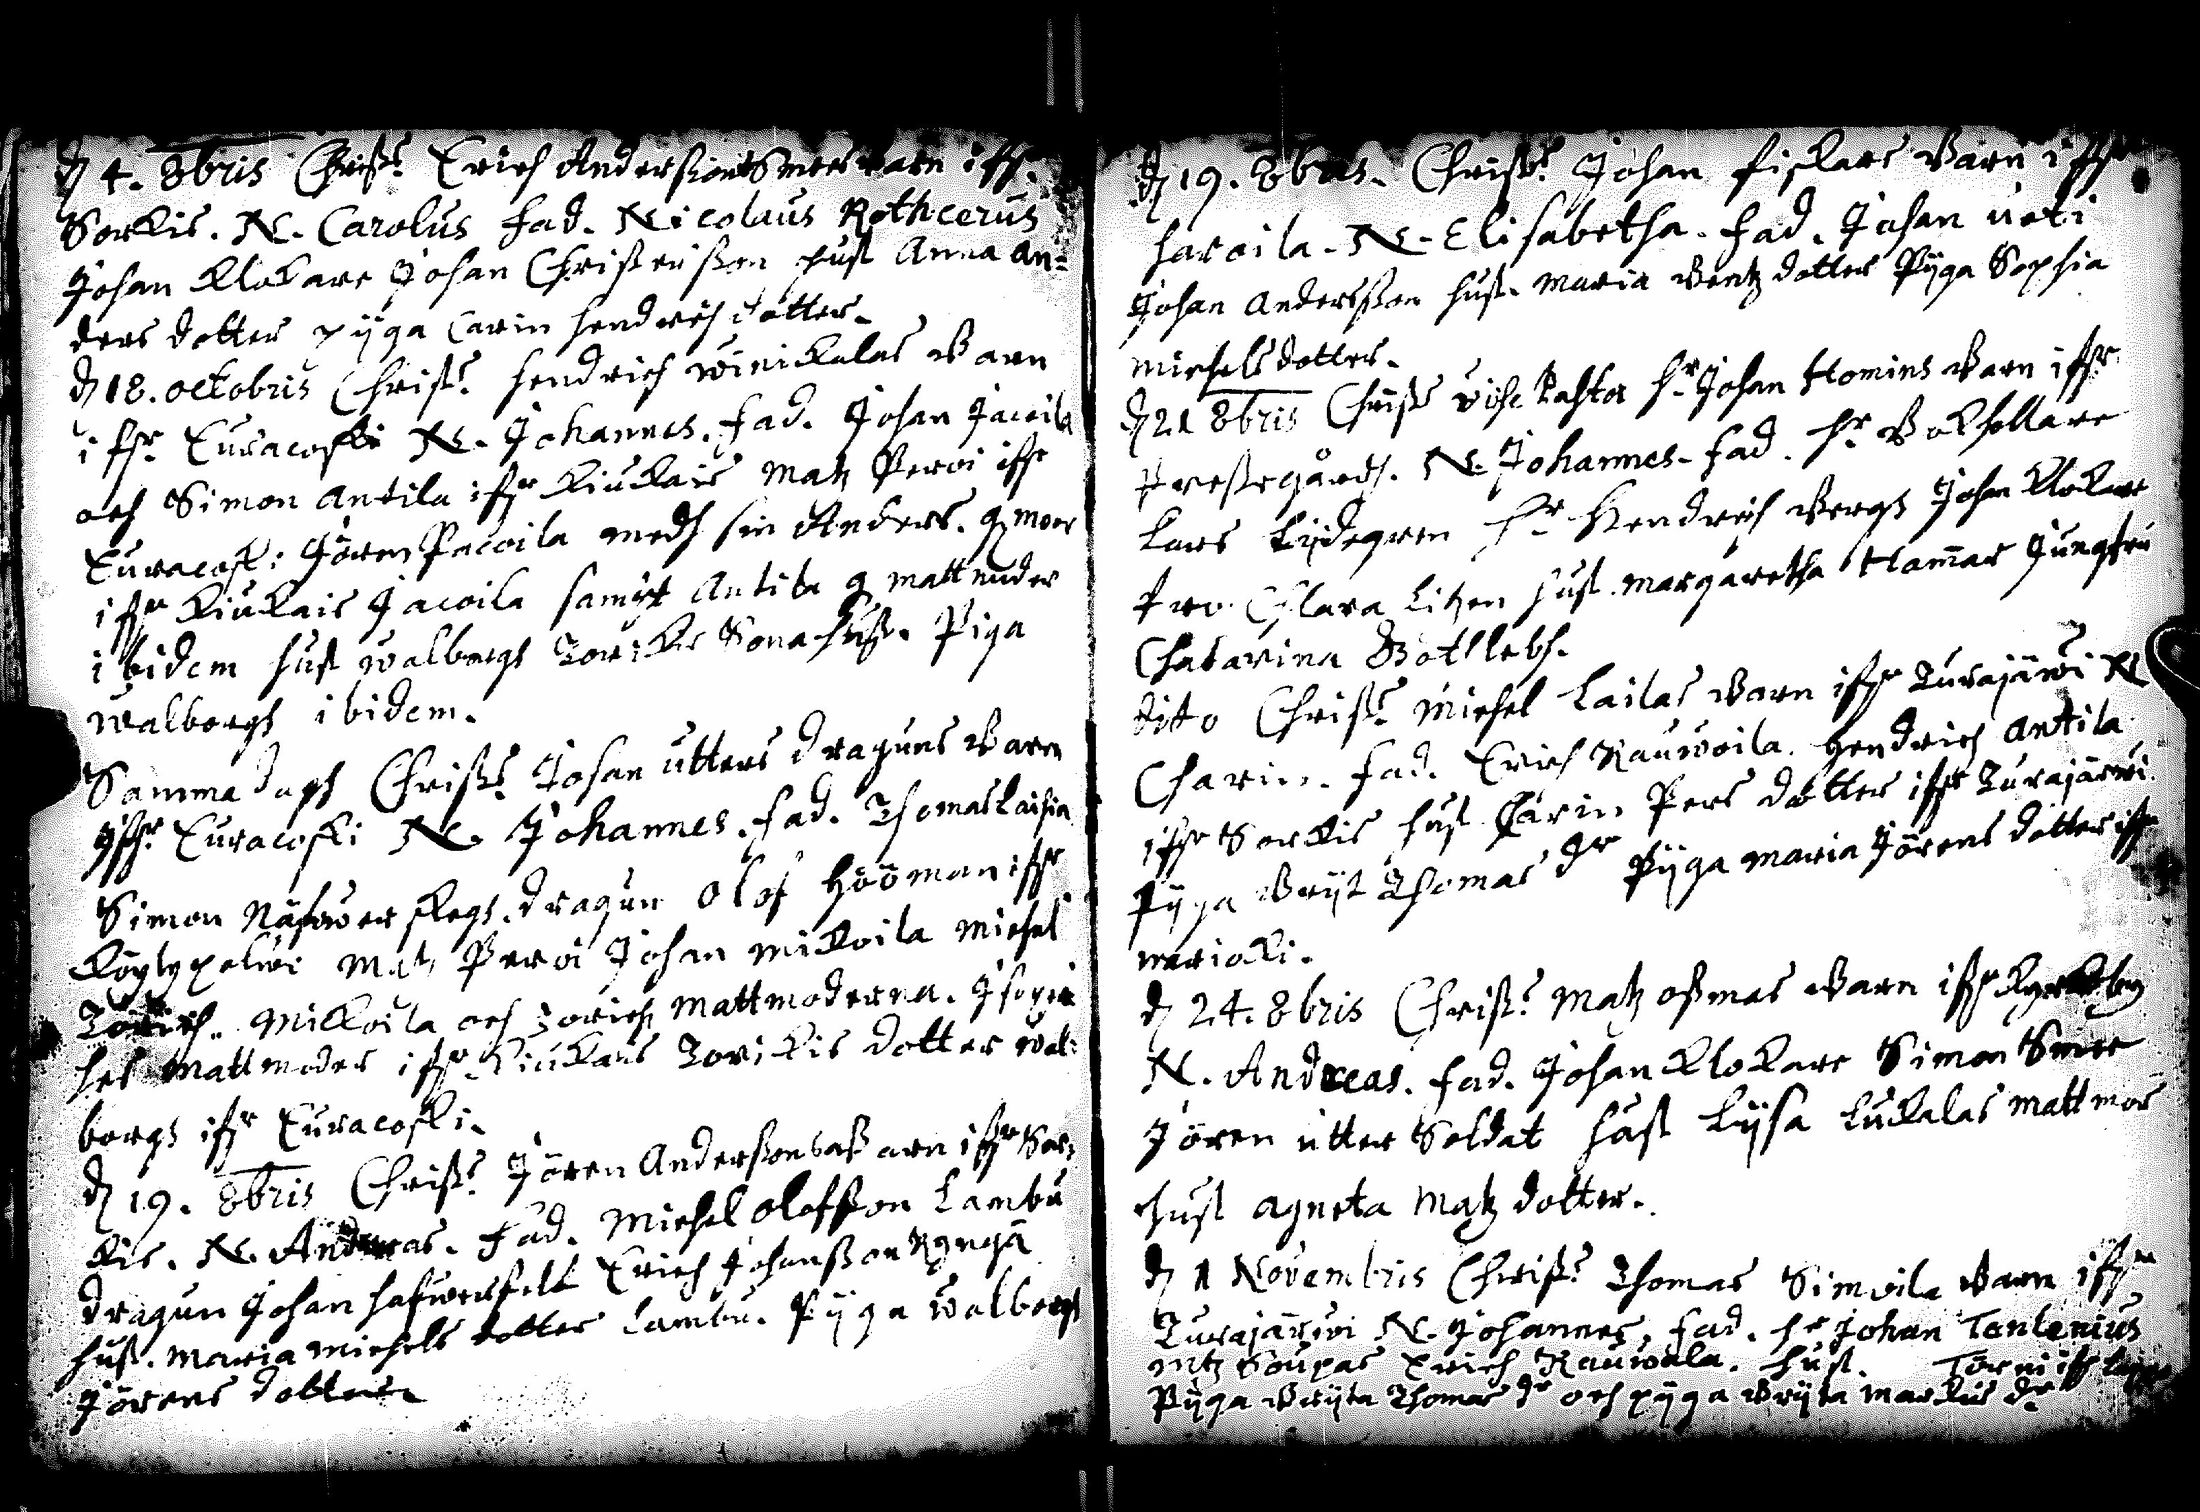 d 4. 8bris Christ. Erich Anderssons Smeds barn ifr.
Sorkis. N. Carolus fad. Nicolaus Rothcerus
Johan Klokare Johan Christersson hust Anna An=
ders dotter pyga Carin hendrich dotter.
d 18. octobris Christ. hendrich winickalas Barn
ifr. Euracoski N. Johannes. fad. Johan Jacoila
och Simon Antila ifr Kiukais Matz Pervi ifr
Euracosk: Jören Pacoila medh sin Anders. g moor
ifr Kiukais Jacoila sampt Antila g mattmuder
ibidem hust walborgh Torikis Sona hust. Piga
walborgh ibidem.
Samma dagh Christ. Johan utters draguns Barn
ifr. Euracoski N. Johannes. fad. Thomas Laihia
Simon Näfwerskegh. dragun Olof Hööman ifr
Köylypolwi Matz Pervi Johan Mickoila Michel
Torich. Mickoila och Torich mattmoderna.
hel Mattmoder ifr Kiukais Torikis dotter wal:
borgh ifr Euracoski.
d 19. 8bris Christ. Jören Andersson barn ifr Sor:
kis. N. Andreas. fad. Michel Olofsson Lambu
dragun Johan hafwerfelt Erich Johansson
hust. Maria Michels dotter Lambu. Pyga walborgh
Jörens dotter
d 19. 8bris. Christ. Johan fiskars Barn ifr
haroila. N. Elisabetha. fad. Johan ueti
Johan Andersson hust. Maria Bentz dotter Pyga Sophia
michels dotter.
d 21 8bris Christ vice Pastor hr Johan Homins Barn ifr
Prestegårdh. N. Johannes. fad. hr Bokhollare
Lars Lydegren hr Hendrich Bergh Johan Klokare
fro Chlara Litzen hust. Margaretha Hammar Jungfru
Chatarina Gotlebh.
dito Christ. Michel Lailas Barn ifr Turajärwi N
Charin. fad. Erich Rauwoila. Hendrich Antila
ifr Sorkis hust Carin Pers dotter ifr Turajärwi.
Pyga Bryt Thomas dr Pyga Maria Jörens dotter ifr
mariocki.
d 24. 8bris Christ. Matz ossmas Barn ifr
N. Andreas. fad. Johan Klokare Simon Smee
Jören utter Soldat hust Lysa Luckalas mattmor
hust Agneta Matz dotter.
d 1 Novembris Christ. Thomas Simoila Barn ifr
Turajärwi N. Johannes. fad. hr Johan Tenlenius
Mtz Soupas Erich Rauwala. hust. Torni ifr
Pyga Bryta Thomas dr och pyga Bryta Markus dr